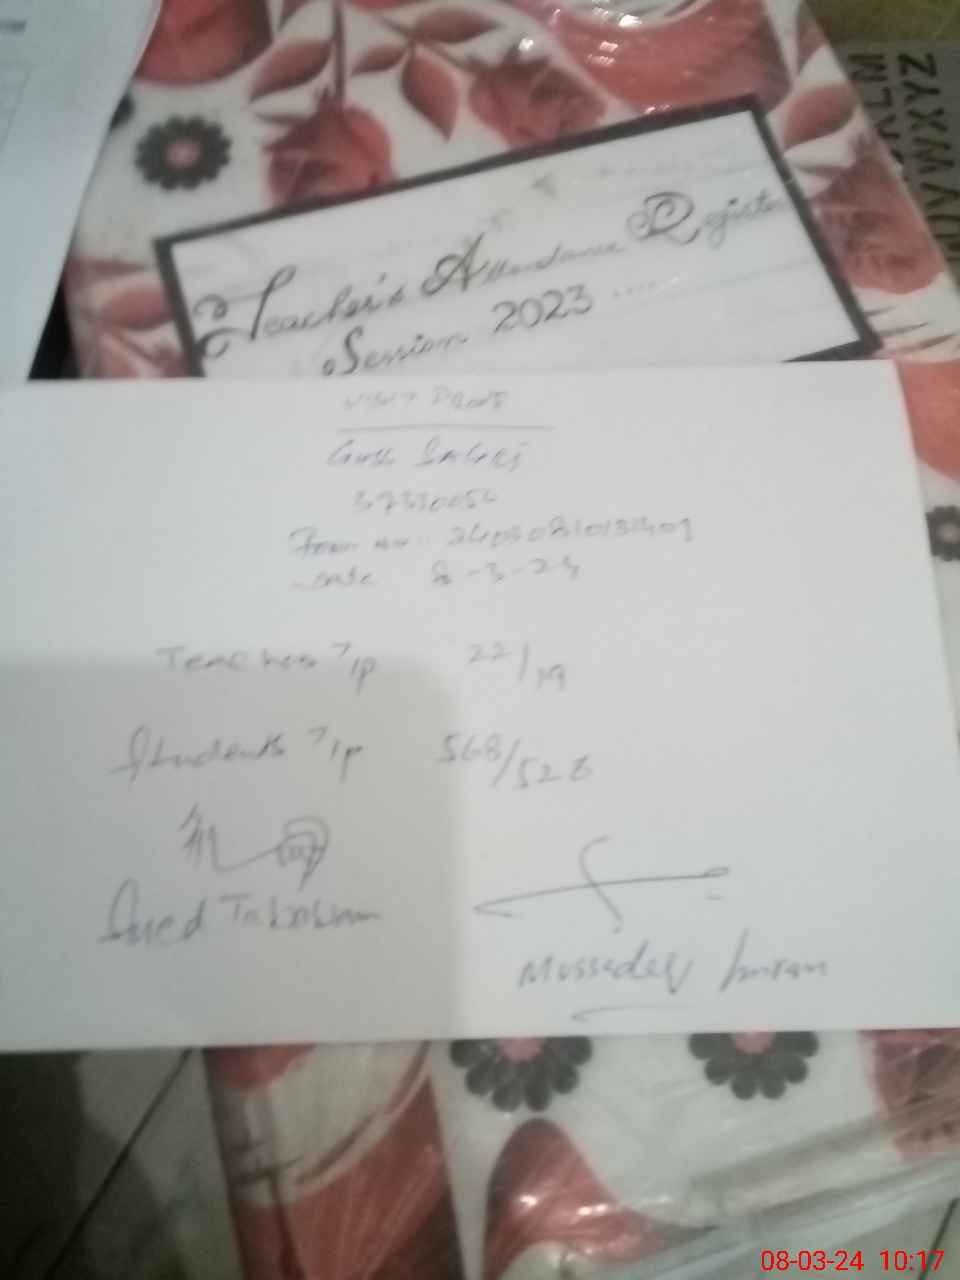 Teacher's Attendance Register
Session 2023
VISIT PROOF
37330054
Form no:- 24030810131401
Date 8-3-24
Teachers T/P 22/19
Students T/P 568/528
Syed
Mussadeq Imran
08-03-24 10:17